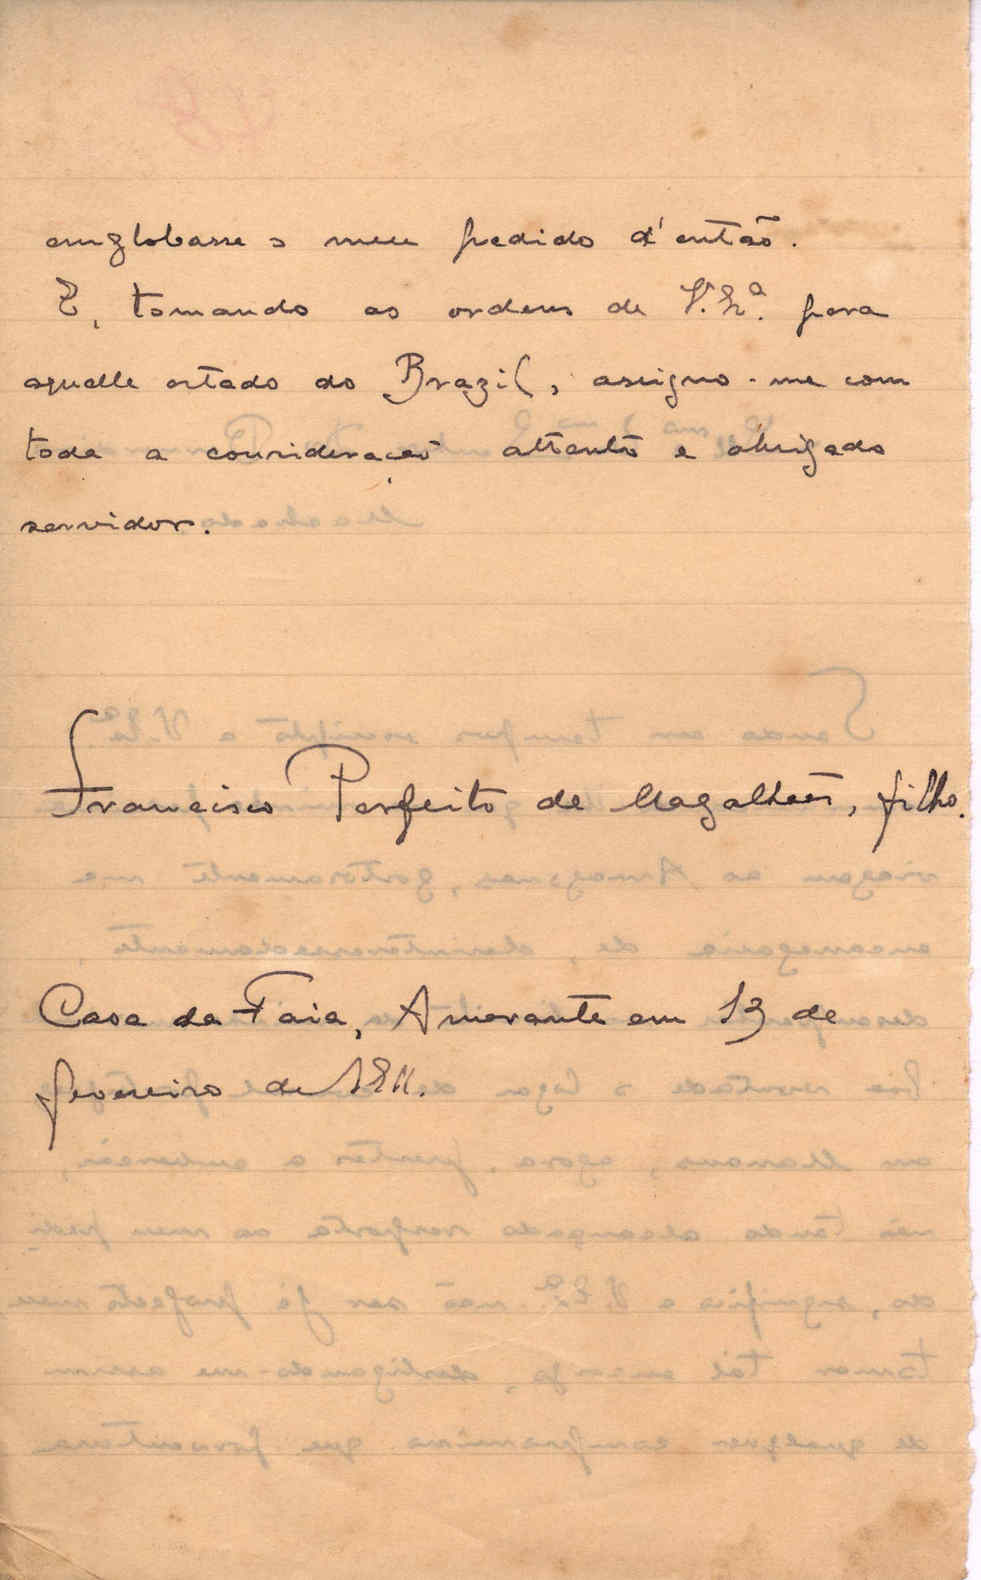 englobasse o meu pedido d'então.
E, tomando as ordens de V. Exª. para
aquelle estado do Brazil, assigno-me com
toda a consideração attento e obrigado
servidor.
Francisco Perfeito de Magalhães, filho.
Casa da Faia, Amarante em 13 de
fevereiro de 1911.